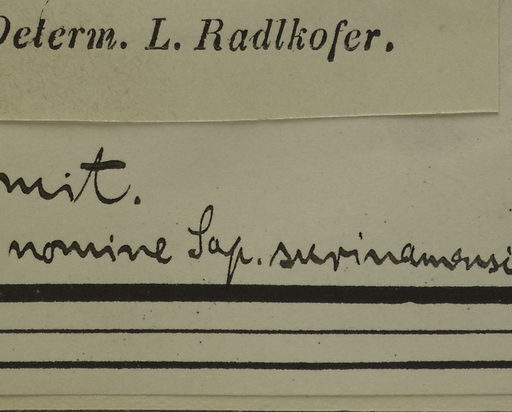 Determ. L. Radlkofer.
mit.
nomine Sap. surinamensi